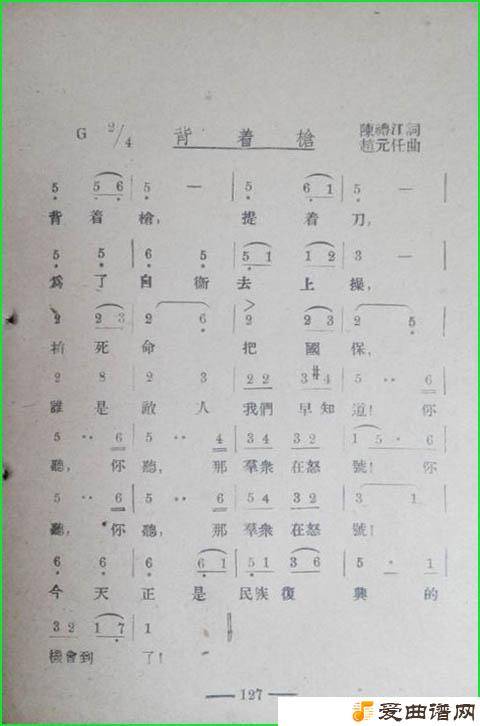 G 2/4 背着槍 陳禮江詞
趙元任曲
5 5 6 | 5 — | 5 6 1 | 5 —
背着槍, 提着刀,
5 5 | 6 5 | 5 1 1 2 | 3 —
爲了自衞去上操,
2 2 3 | 2 6 | 2 2 3 | 2 5
拚死命 把國保,
2 3 | 2 3 | 2 2 3 #4 | 5 ·· 6
誰是敵人我們早知道! 你
5 ·· 6 | 5 ·· 4 | 3 4 3 2 | 1 5 · 6
聽, 你聽, 那羣衆在怒號! 你
5 ·· 6 | 5 ·· 6 | 5 4 3 2 | 3 1
聽, 你聽, 那羣衆在怒號!
6 6 | 6 6 1 | 5 1 3 6 | 5 · 1
今天正是民族復興的
3 2 1 7 | 1 ‖
機會到了!
— 127 —
爱曲谱网